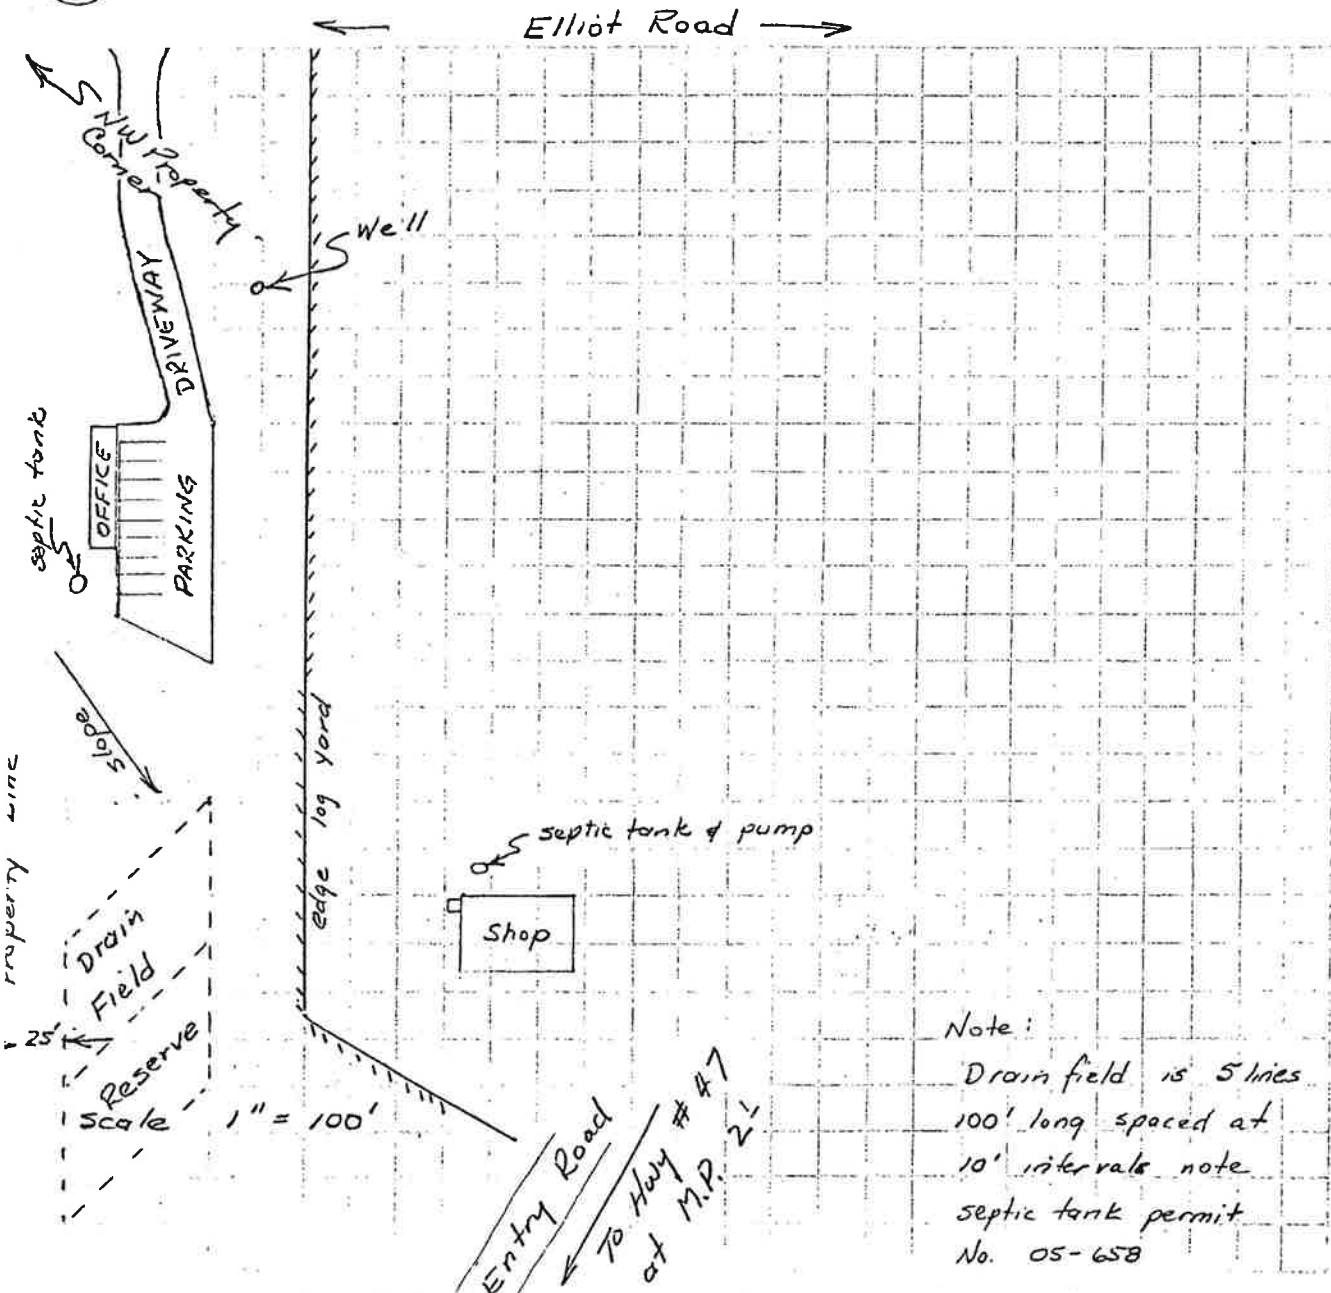 Elliot Road
NW Property
Corner
Well
DRIVEWAY
septic tank
OFFICE
PARKING
slope
Property Line
edge log yard
septic tank & pump
Shop
Drain
Field
25'
Reserve
Scale 1" = 100'
Entry Road
To Hwy # 47
at M.P. 21
Note:
Drain field is 5 lines
100' long spaced at
10' intervals note
septic tank permit
No. 05-658